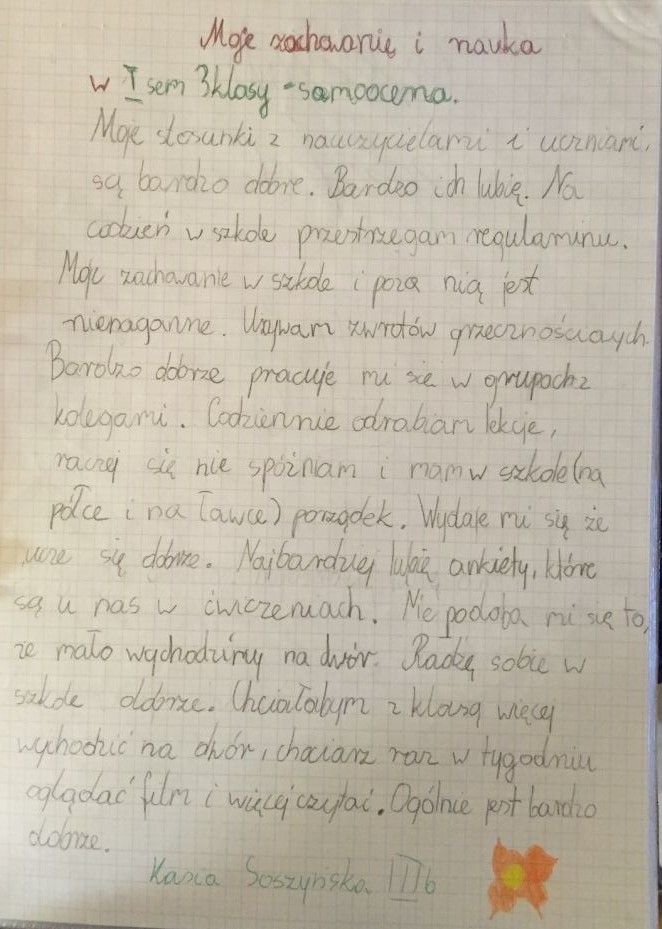 Moje zachowanie i nauka
w I sem 3 klasy - samoocena.
Moje stosunki z nauczycielami i uczniami,
są bardzo dobre. Bardzo ich lubię. Na
codzień w szkole przestrzegam regulaminu.
Moje zachowanie w szkole i poza nią jest
nienaganne. Używam zwrotów grzecznościowych.
Bardzo dobrze pracuje mi się w grupach z
kolegami. Codziennie odrabiam lekcje,
raczej się nie spóźniam i mam w szkole (na
półce i na ławce) porządek. Wydaje mi się że
ucze się dobrze. Najbardziej lubię ankiety, które
są u nas w ćwiczeniach. Nie podoba mi się to,
że mało wychodzimy na dwór. Radzę sobie w
szkole dobrze. Chciałabym z klasą więcej
wychodzić na dwór, chciarz raz w tygodniu
oglądać film i więcej czytać. Ogólnie jest bardzo
dobrze.
Kasia Soszyńska III b